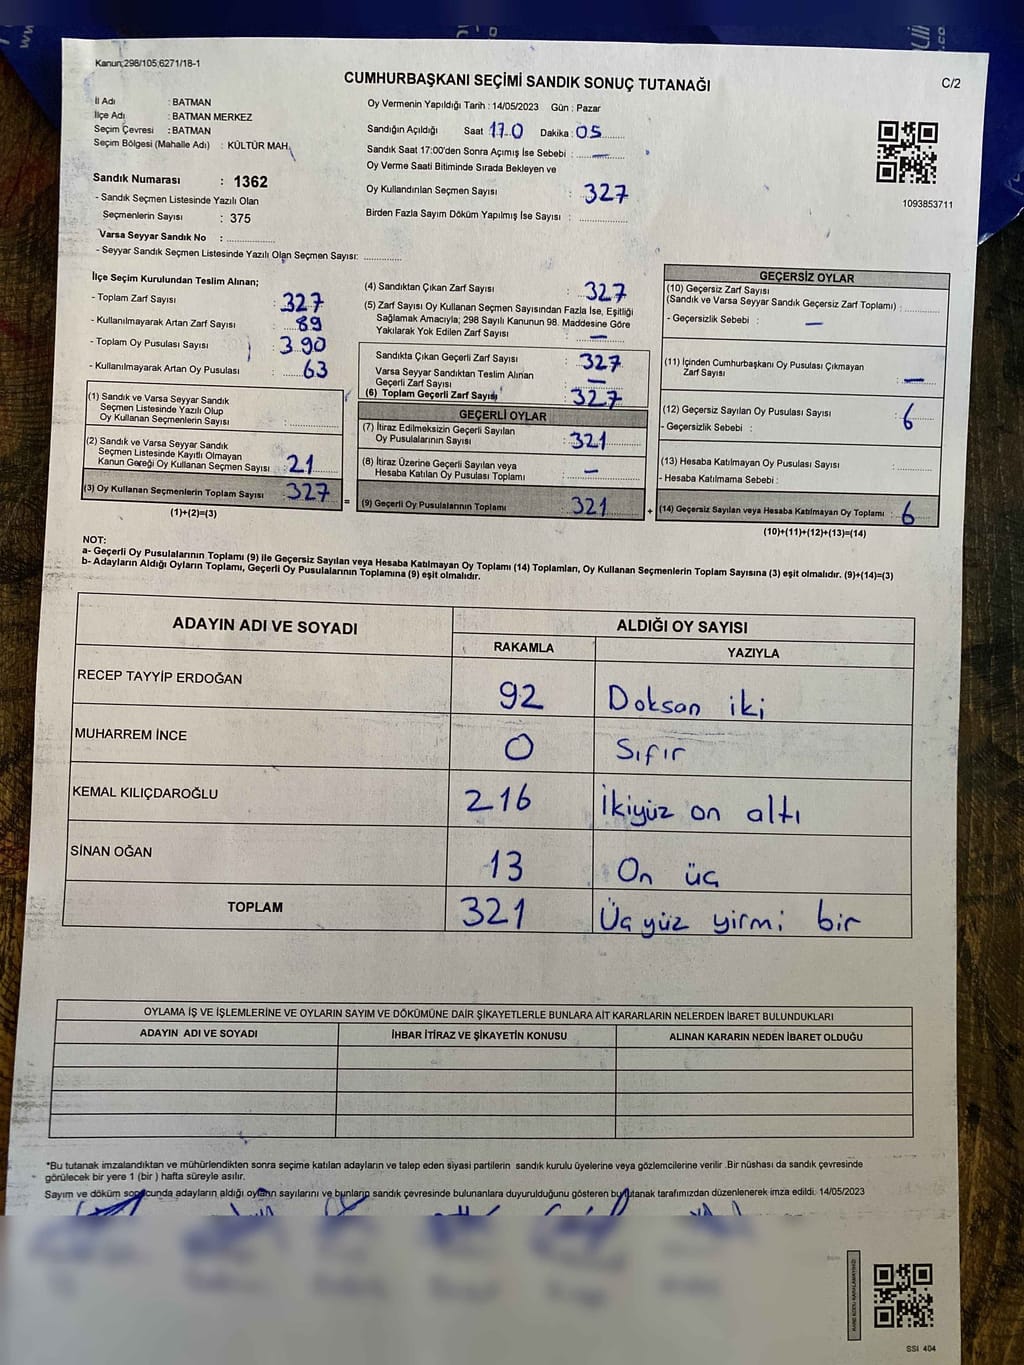 Kanun;298/105;6271/18-1
CUMHURBAŞKANI SEÇİMİ SANDIK SONUÇ TUTANAĞI
C/2
İl Adı : BATMAN
İlçe Adı : BATMAN MERKEZ
Seçim Çevresi : BATMAN
Seçim Bölgesi (Mahalle Adı) : KÜLTÜR MAH.
Sandık Numarası : 1362
- Sandık Seçmen Listesinde Yazılı Olan
Seçmenlerin Sayısı : 375
Varsa Seyyar Sandık No : ..............
- Seyyar Sandık Seçmen Listesinde Yazılı Olan Seçmen Sayısı: ............
Oy Vermenin Yapıldığı Tarih : 14/05/2023 Gün : Pazar
Sandığın Açıldığı Saat 17.0 Dakika : 05
Sandık Saat 17:00'den Sonra Açımış İse Sebebi : —
Oy Verme Saati Bitiminde Sırada Bekleyen ve
Oy Kullandırılan Seçmen Sayısı : 327
Birden Fazla Sayım Döküm Yapılmış İse Sayısı : ..............
1093853711
İlçe Seçim Kurulundan Teslim Alınan;
- Toplam Zarf Sayısı : 327
- Kullanılmayarak Artan Zarf Sayısı : 89
- Toplam Oy Pusulası Sayısı : 390
- Kullanılmayarak Artan Oy Pusulası : 63
(1) Sandık ve Varsa Seyyar Sandık
Seçmen Listesinde Yazılı Olup
Oy Kullanan Seçmenlerin Sayısı : ..............
(2) Sandık ve Varsa Seyyar Sandık
Seçmen Listesinde Kayıtlı Olmayan
Kanun Gereği Oy Kullanan Seçmen Sayısı : 21
(3) Oy Kullanan Seçmenlerin Toplam Sayısı : 327
(1)+(2)=(3)
(4) Sandıktan Çıkan Zarf Sayısı : 327
(5) Zarf Sayısı Oy Kullanan Seçmen Sayısından Fazla İse, Eşitliği
Sağlamak Amacıyla; 298 Sayılı Kanunun 98. Maddesine Göre
Yakılarak Yok Edilen Zarf Sayısı : —
Sandıkta Çıkan Geçerli Zarf Sayısı : 327
Varsa Seyyar Sandıktan Teslim Alınan
Geçerli Zarf Sayısı : —
(6) Toplam Geçerli Zarf Sayısı : 327
GEÇERLİ OYLAR
(7) İtiraz Edilmeksizin Geçerli Sayılan
Oy Pusulalarının Sayısı : 321
(8) İtiraz Üzerine Geçerli Sayılan veya
Hesaba Katılan Oy Pusulası Toplamı : —
= (9) Geçerli Oy Pusulalarının Toplamı : 321
GEÇERSİZ OYLAR
(10) Geçersiz Zarf Sayısı
(Sandık ve Varsa Seyyar Sandık Geçersiz Zarf Toplamı) : ..............
- Geçersizlik Sebebi : —
(11) İçinden Cumhurbaşkanı Oy Pusulası Çıkmayan
Zarf Sayısı : —
(12) Geçersiz Sayılan Oy Pusulası Sayısı : 6
- Geçersizlik Sebebi :
(13) Hesaba Katılmayan Oy Pusulası Sayısı : ..............
- Hesaba Katılmama Sebebi :
+ (14) Geçersiz Sayılan veya Hesaba Katılmayan Oy Toplamı : 6
(10)+(11)+(12)+(13)=(14)
NOT:
a- Geçerli Oy Pusulalarının Toplamı (9) ile Geçersiz Sayılan veya Hesaba Katılmayan Oy Toplamı (14) Toplamları, Oy Kullanan Seçmenlerin Toplam Sayısına (3) eşit olmalıdır. (9)+(14)=(3)
b- Adayların Aldığı Oyların Toplamı, Geçerli Oy Pusulalarının Toplamına (9) eşit olmalıdır.
ADAYIN ADI VE SOYADI ALDIĞI OY SAYISI
RAKAMLA YAZIYLA
RECEP TAYYİP ERDOĞAN 92 Doksan iki
MUHARREM İNCE 0 Sıfır
KEMAL KILIÇDAROĞLU 216 İkiyüz on altı
SİNAN OĞAN 13 On üç
TOPLAM 321 Üç yüz yirmi bir
OYLAMA İŞ VE İŞLEMLERİNE VE OYLARIN SAYIM VE DÖKÜMÜNE DAİR ŞİKAYETLERLE BUNLARA AİT KARARLARIN NELERDEN İBARET BULUNDUKLARI
ADAYIN ADI VE SOYADI İHBAR İTİRAZ VE ŞİKAYETİN KONUSU ALINAN KARARIN NEDEN İBARET OLDUĞU
*Bu tutanak imzalandıktan ve mühürlendikten sonra seçime katılan adayların ve talep eden siyasi partilerin sandık kurulu üyelerine veya gözlemcilerine verilir .Bir nüshası da sandık çevresinde
görülecek bir yere 1 (bir) hafta süreyle asılır.
Sayım ve döküm sonucunda adayların aldığı oyların sayılarını ve bunların sandık çevresinde bulunanlara duyurulduğunu gösteren bu tutanak tarafımızdan düzenlenerek imza edildi. 14/05/2023
SSI 404